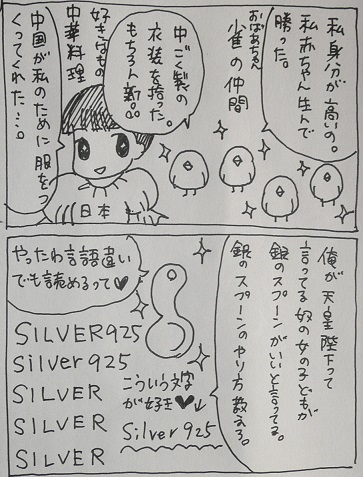 私身分が高いの。
私赤ちゃん生んで
勝った。
おばあちゃん
雀の仲間
中ごく製の
衣装を拾った。
もちろん新品。
好きなもの
中華料理
中国が私のために服をつ
くってくれた…。
日本
俺が天皇陛下って
言ってる奴の女の子どもが
銀のスプーンがいいと言ってる。
銀のスプーンのやり方教えろ。
やったわ言語違い
でも読めるって♥
SILVER925
Silver925
SILVER
SILVER
SILVER
こういう文字
が好き♥
Silver925